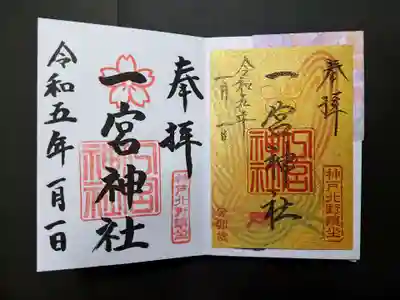 奉拝
一宮神社
神戸北野鎮坐
令和五年
一月一日
奉拝
一宮神社
一宮神社
神戸北野鎮坐
令和五年一月一日